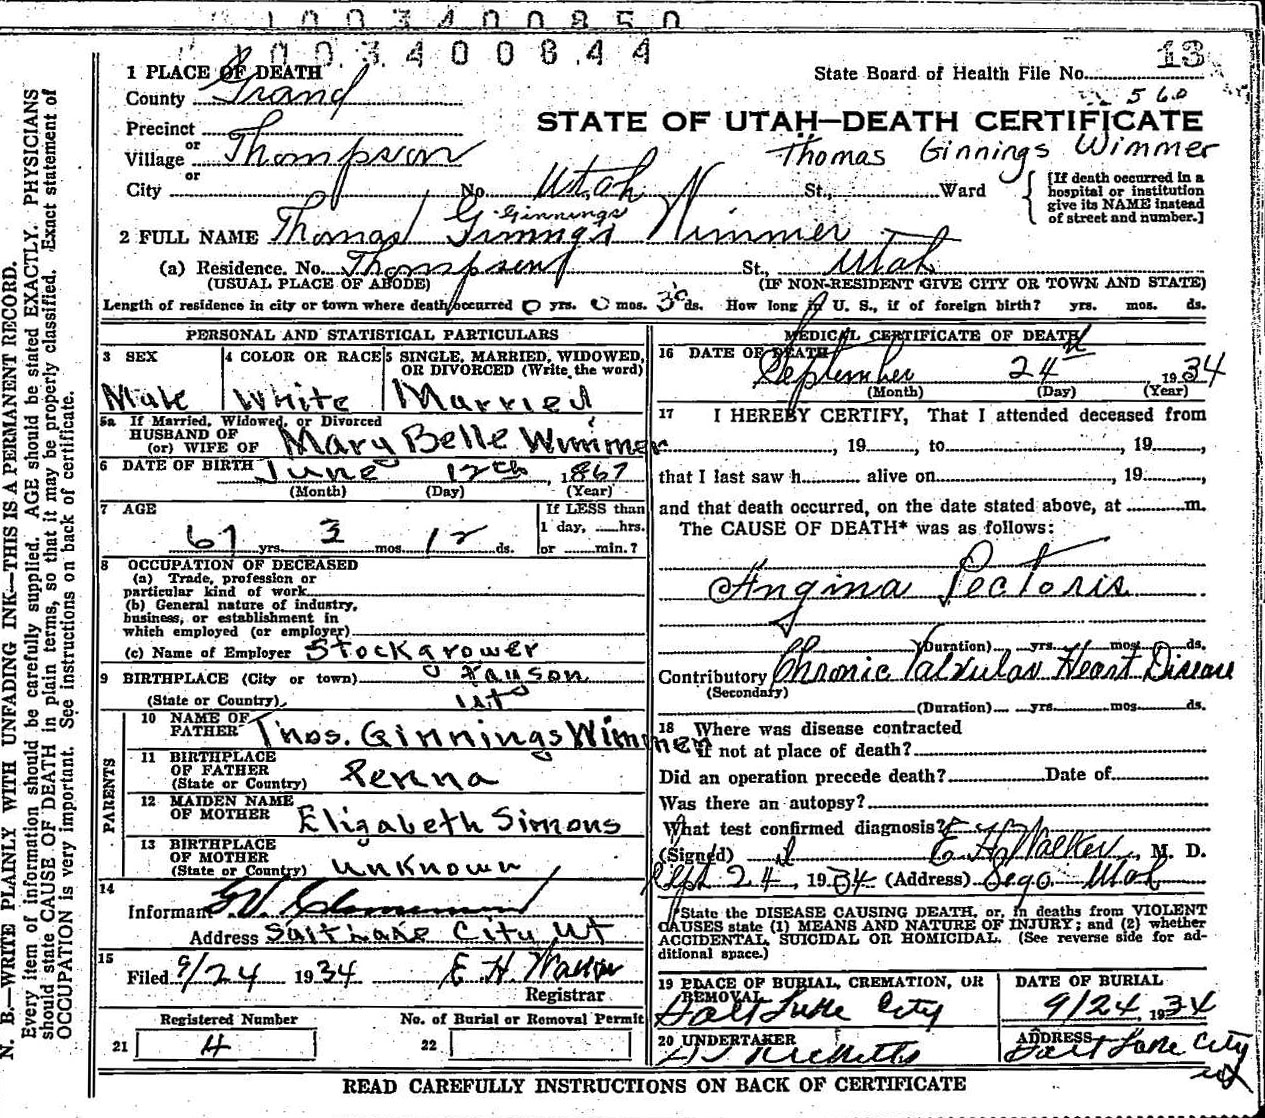 1003400850
1003400844
13
1 PLACE OF DEATH
State Board of Health File No.
County Grand
560
STATE OF UTAH—DEATH CERTIFICATE
Precinct
or
Thomas Ginnings Wimmer
Village Thompson
or
City No. Utah St., Ward
[If death occurred in a
hospital or institution
give its NAME instead
of street and number.]
Ginnings
2 FULL NAME Thomas G Wimmer
(a) Residence. No. Thompson St., Utah
(USUAL PLACE OF ABODE) (IF NON-RESIDENT GIVE CITY OR TOWN AND STATE)
Length of residence in city or town where death occurred 0 yrs. 0 mos. 30 ds. How long in U. S., if of foreign birth? yrs. mos. ds.
PERSONAL AND STATISTICAL PARTICULARS
3 SEX
Male
4 COLOR OR RACE
White
5 SINGLE, MARRIED, WIDOWED,
OR DIVORCED (Write the word)
Married
5a If Married, Widowed, or Divorced
HUSBAND OF
(or) WIFE OF Mary Belle Wimmer
6 DATE OF BIRTH June 12th, 1867
(Month) (Day) (Year)
7 AGE
67 yrs. 3 mos. 12 ds.
If LESS than
1 day, hrs.
or min.?
8 OCCUPATION OF DECEASED
(a) Trade, profession or
particular kind of work
(b) General nature of industry,
business, or establishment in
which employed (or employer)
(c) Name of Employer Stockgrower
9 BIRTHPLACE (City or town) Payson
(State or Country) Ut
PARENTS
10 NAME OF
FATHER Thos. Ginnings Wimmer
11 BIRTHPLACE
OF FATHER
(State or Country) Penna
12 MAIDEN NAME
OF MOTHER Elizabeth Simons
13 BIRTHPLACE
OF MOTHER
(State or Country) Unknown
14
Informant
Address Salt Lake City Ut
15
Filed 9/24 1934 E H Walker
Registrar
Registered Number No. of Burial or Removal Permit
21 4 22
MEDICAL CERTIFICATE OF DEATH
16 DATE OF DEATH
September 24th 1934
(Month) (Day) (Year)
17 I HEREBY CERTIFY, That I attended deceased from
, 19 , to , 19 ,
that I last saw h alive on , 19 ,
and that death occurred, on the date stated above, at m.
The CAUSE OF DEATH* was as follows:
Angina Pectoris
(Duration) yrs. mos. ds.
Contributory Chronic Valvular Heart Disease
(Secondary)
(Duration) yrs. mos. ds.
18 Where was disease contracted
if not at place of death?
Did an operation precede death? Date of
Was there an autopsy?
What test confirmed diagnosis?
(Signed) E H Walker, M. D.
Sept 24, 1934 (Address) Sego Utah
*State the DISEASE CAUSING DEATH, or, in deaths from VIOLENT
CAUSES state (1) MEANS AND NATURE OF INJURY; and (2) whether
ACCIDENTAL, SUICIDAL OR HOMICIDAL. (See reverse side for ad-
ditional space.)
19 PLACE OF BURIAL, CREMATION, OR
REMOVAL
Salt Lake City
DATE OF BURIAL
9/24, 1934
20 UNDERTAKER
Ricketts
ADDRESS
Salt Lake City
Ut
READ CAREFULLY INSTRUCTIONS ON BACK OF CERTIFICATE
N. B.—WRITE PLAINLY WITH UNFADING INK—THIS IS A PERMANENT RECORD.
Every item of information should be carefully supplied. AGE should be stated EXACTLY. PHYSICIANS
should state CAUSE OF DEATH in plain terms, so that it may be properly classified. Exact statement of
OCCUPATION is very important. See instructions on back of certificate.